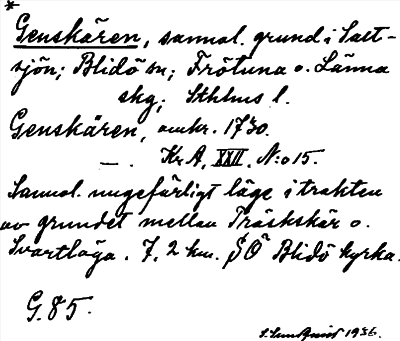 *
Genskären, sannol. grund i Salt-
sjön; Blidö sn; Frötuna o. Länna
skg; Sthlms l.
Genskären, omkr. 1730.
—. Kr A. XXII. N:o 15.
Sannol. ungefärligt läge i trakten
av grundet mellan Träskskär o.
Svartlöga. 7,2 km. SÖ Blidö kyrka.
G. 85.
S. Lundquist 1936.